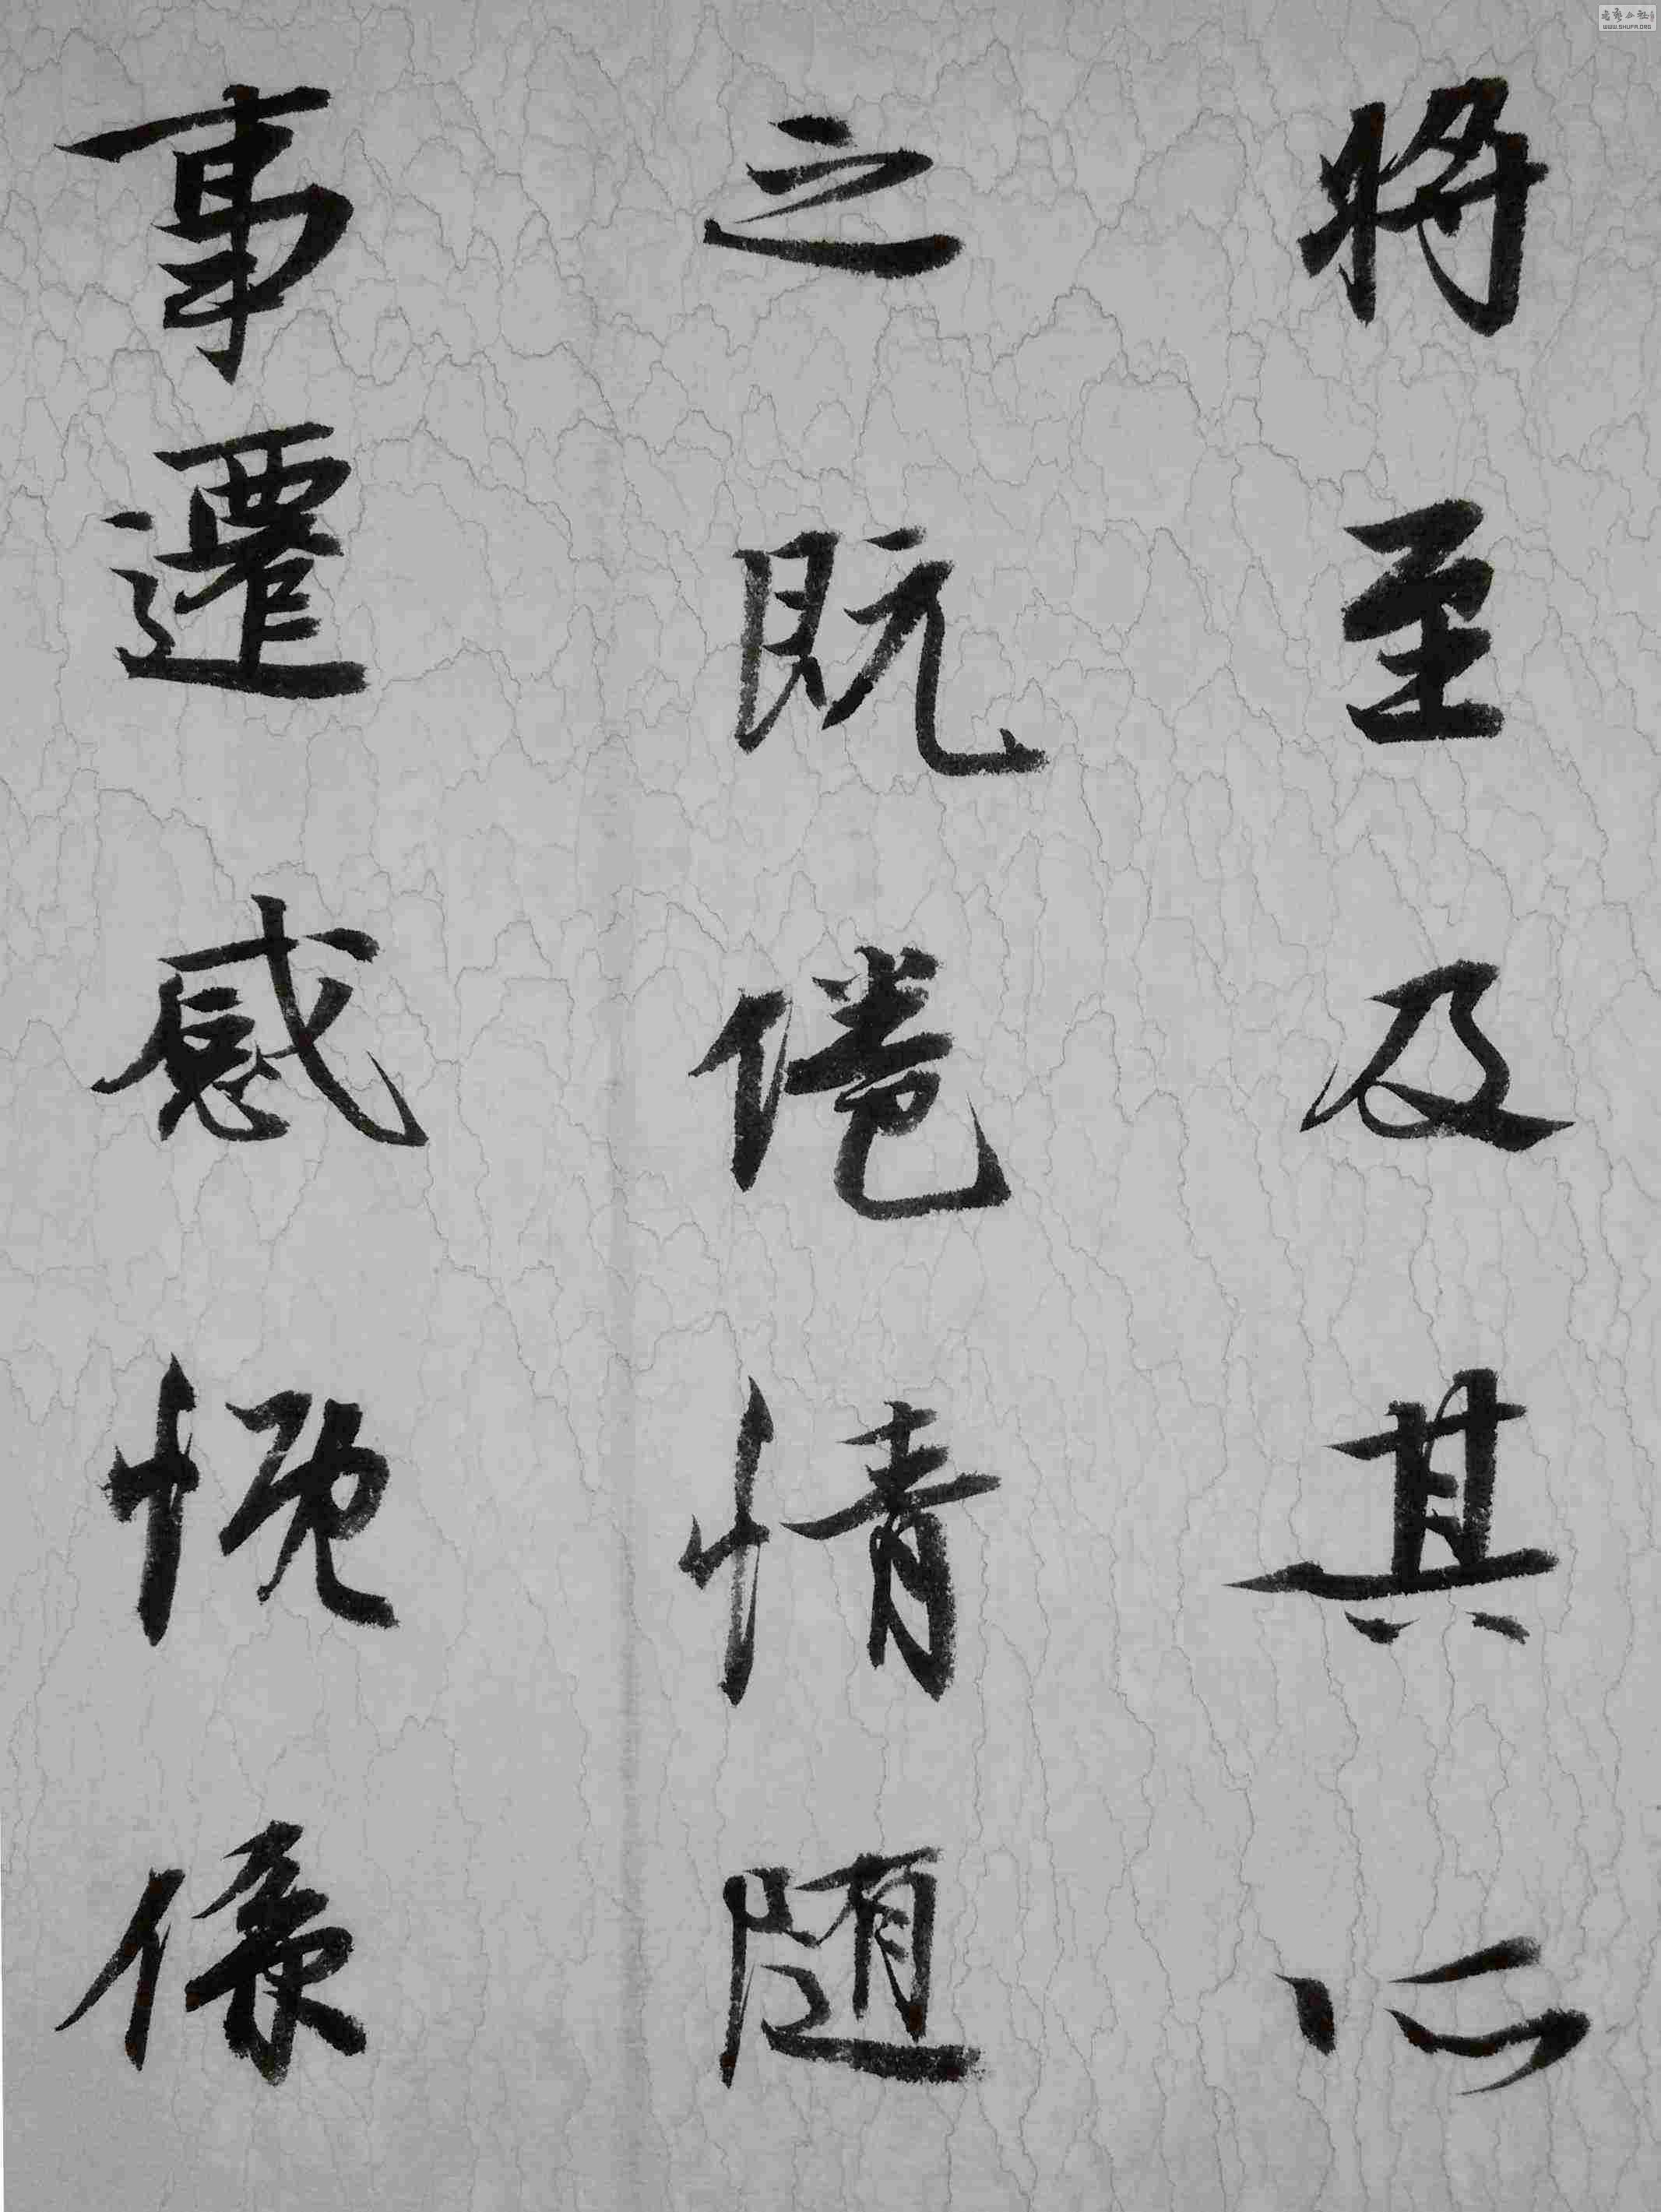 将至及其所
之既倦情随
事遷感慨係
WWW.SHUFA.ORG